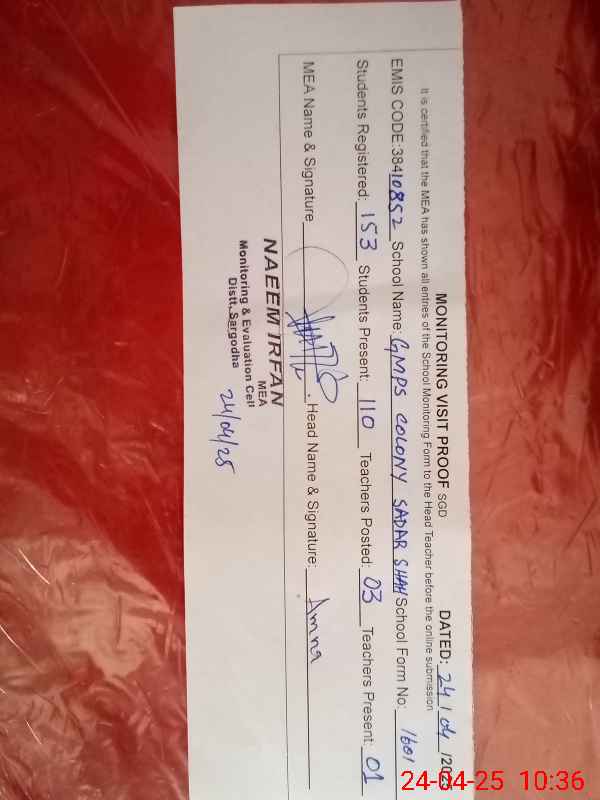 MONITORING VISIT PROOF SGD DATED: 24/04/202
It is certified that the MEA has shown all entries of the School Monitoring Form to the Head Teacher before the online submission
EMIS CODE:38410852 School Name: GMPS COLONY SADAR SHAH School Form No: 1601
Students Registered: 153 Students Present: 110 Teachers Posted: 03 Teachers Present: 01
MEA Name & Signature Head Name & Signature: Amna
NAEEM IRFAN
MEA
Monitoring & Evaluation Cell
Distt, Sargodha
24/04/25
24-04-25 10:36